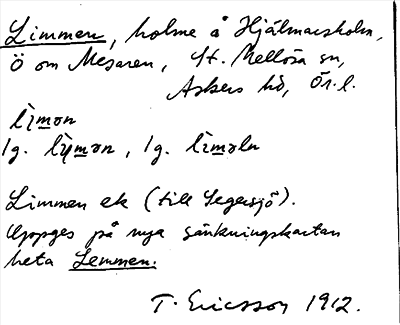 Limmen, holme å Hjälmarsholm,
Ö om Mesaren, St. Mellösa sn,
Askers hd, Ör. l.
lìmən
1g. lìymən, 1g. lìməln
Limmen ek (till Segersjö).
Uppges på nya sänkningskartan
heta Lemmen.
T. Ericsson 1912.